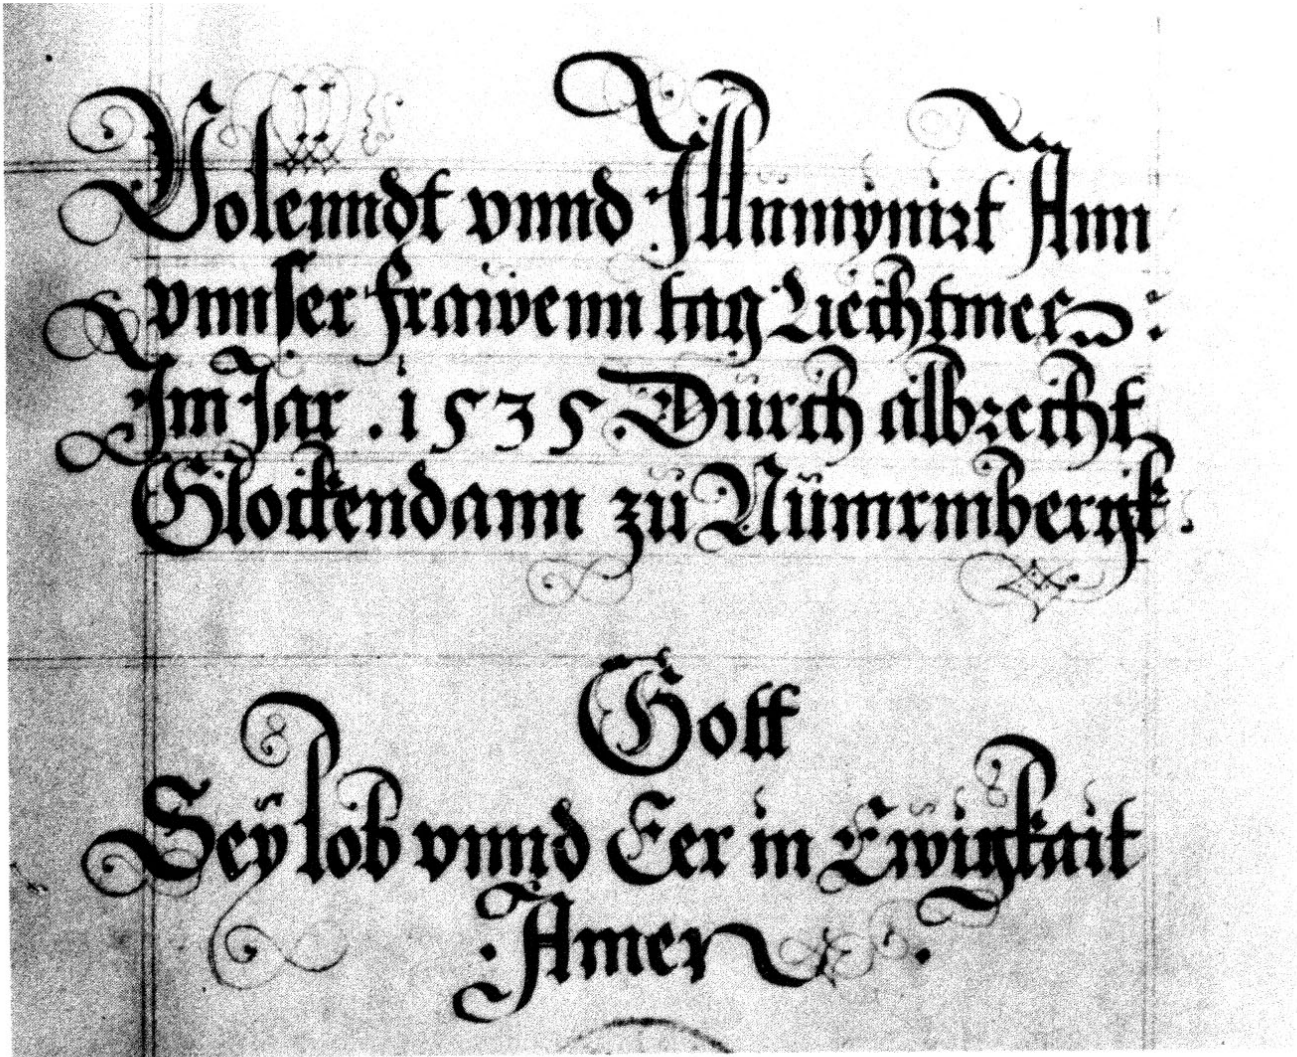 Volenndt vnnd Jllumynirt Ann
vnnser frawenn tag Liechtmeß :
Im Jar . 1535 Durch albrecht
Glockendann zü Nürmberg .
Gott
Sey lob vnnd Eer in Ewigkait
. Amen .